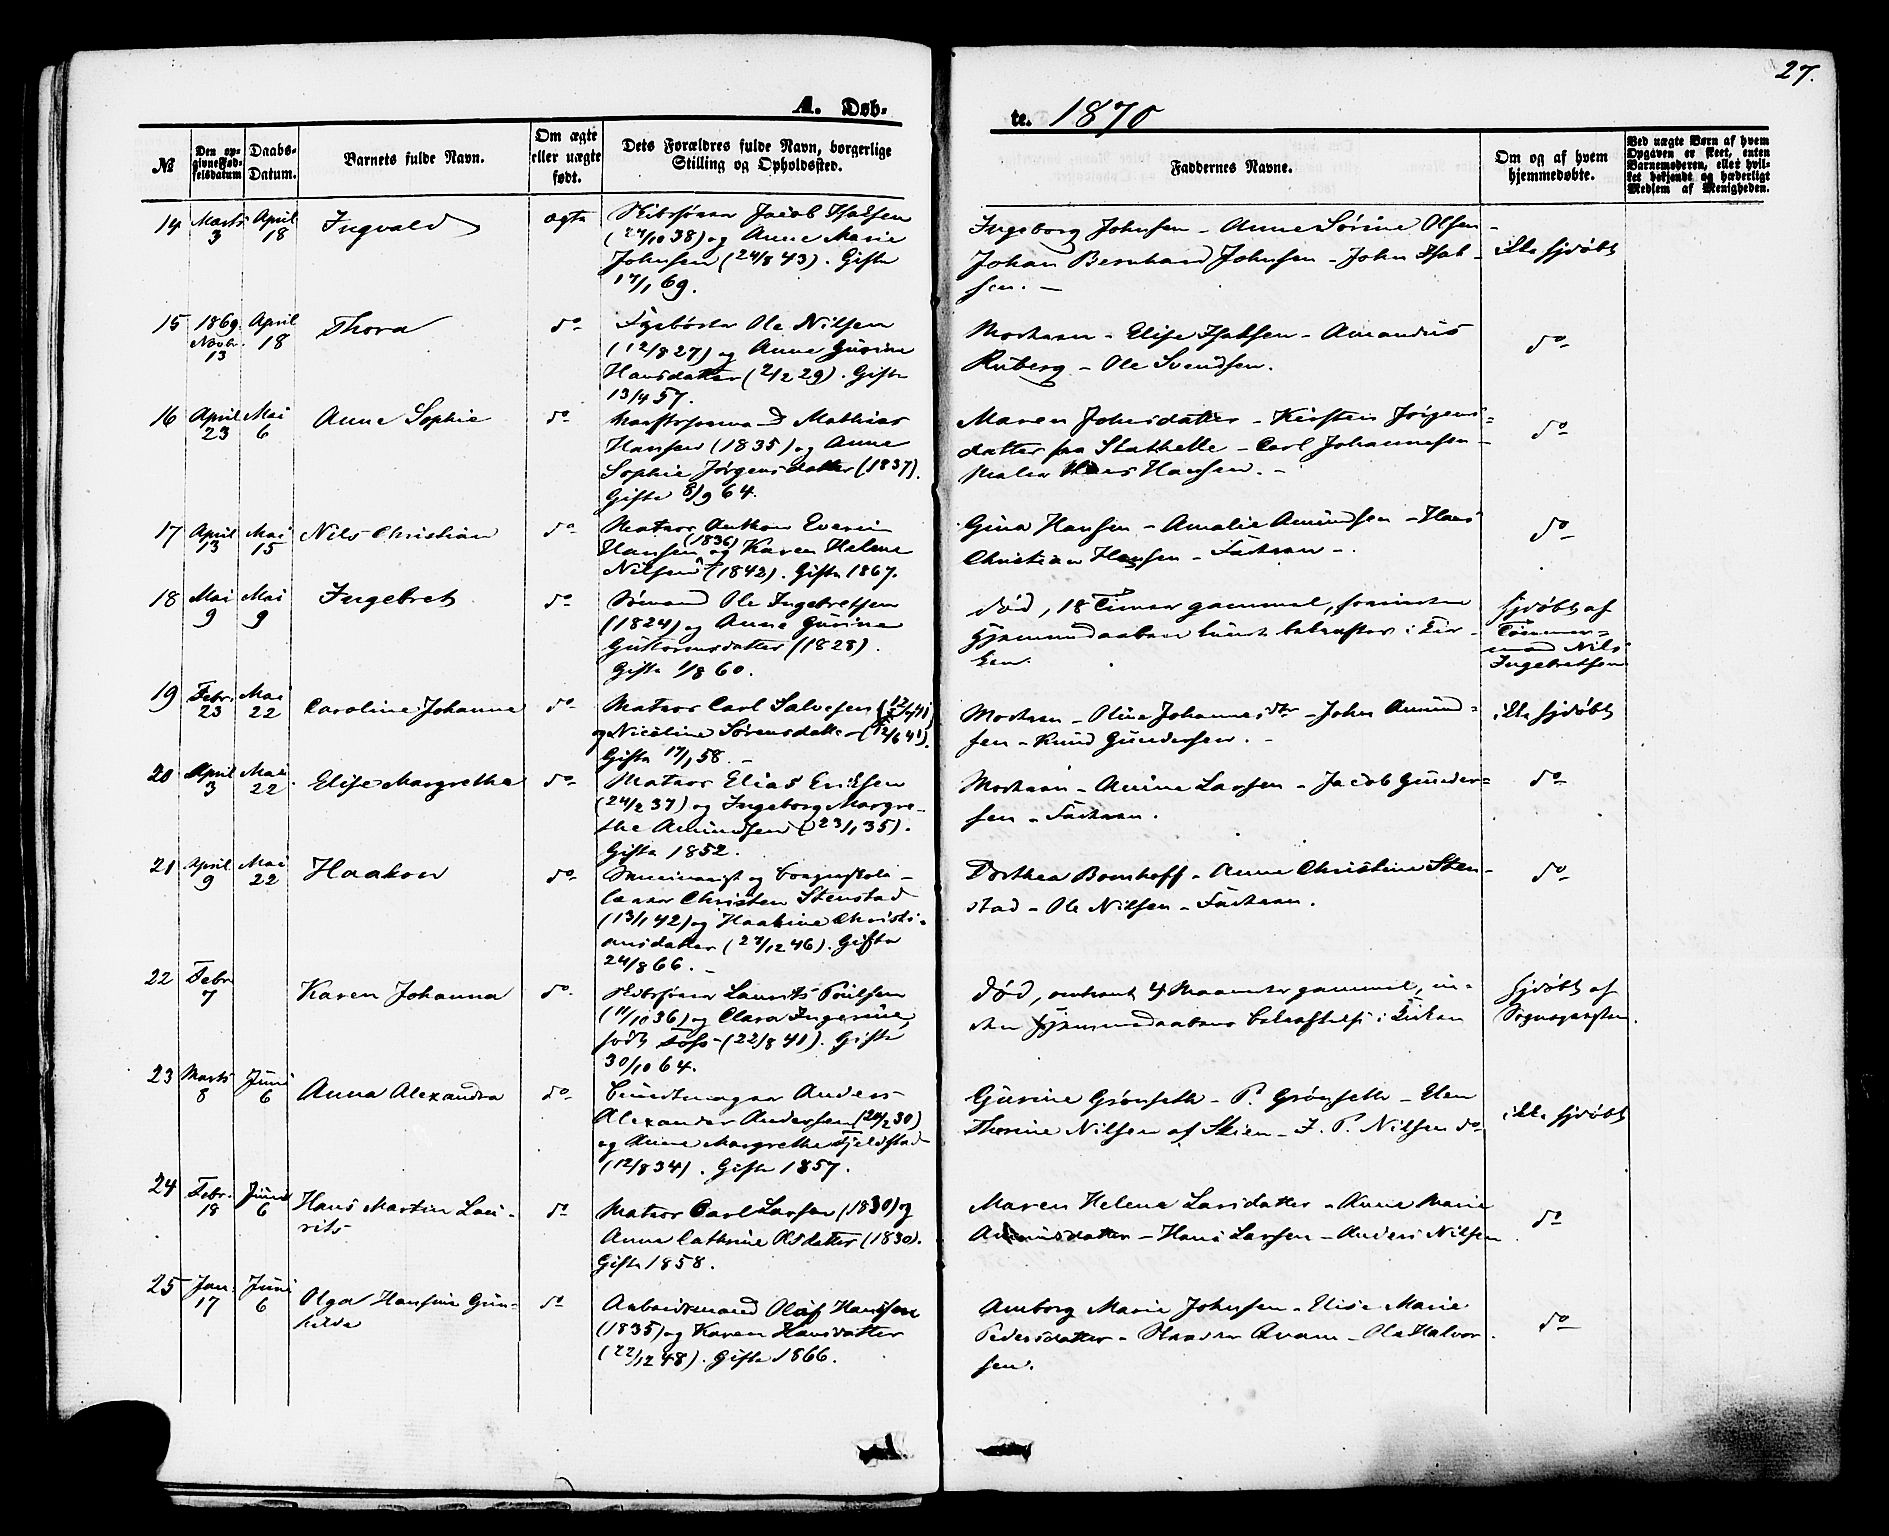 27.
A. Døb-
te. 1870
№
Den op-
givne Fød-
selsdatum
Daabs-
Datum.
Barnets fulde Navn.
Om ægte
eller uægte
født.
Dets Forældres fulde Navn, borgerlige
Stilling og Opholdssted.
Faddernes Navne.
Om og af hvem
hjemmedøbte.
Ved uægte Børn af hvem
Opgaven er skeet, enten
Barnemoderen, eller hvil-
ket bekjendt og hæderligt
Medlem af Menigheden.
14 Marts 3 April 18 Ingvald ægte
Skibsfører Jacob Isaksen
(24/10 38) og Anne Marie
Johnsen (24/8 43). Gifte
17/1 69.
Ingeborg Johnsen - Anne Sørine Olsen -
Johan Bernhard Johnsen - John Isak-
sen. -
ikke hjdøbt
15 1869 Novbr. 13 April 18 Thora do
Ole Nilsen
(12/8 27) og Anne Gurine
Hansdatter (2/2 29). Gifte
13/4 57.
Modtaen - Elise Isaksen - Amandus
Ruberg - Ole Svendsen.
do
16 April 23 Mai 6 Anne Sophie do
Mathias
Hansen (1835) og Anne
Sophie Jørgensdatter (1837).
Gifte 8/9 64.
Maren Johnsdatter - Kirsten Jørgens-
datter fra Stathelle - Carl Johannesen -
Maler Hans Hansen. -
do
17 April 13 Mai 15 Nils Christian do
Matros Anthon Everin
Hansen (1836) og Karen Helene
Nilsen (1842). Gifte 1867.
Gina Hansen - Amalie Amundsen - Hans
Christian Hansen - Faderen -.
do
18 Mai 9 Mai 9 Ingebret do
Sømand Ole Ingebretsen
(1824) og Anne Gurine
Guttormsdatter (1828).
Gifte 1/8 60.
død, 18 Timer gammel, forinden
Hjemmedaaben kunde bekræftes i Kir-
ken.
hjdøbt af
Tømmer-
mand Nils
Ingebretsen
19 Febr. 23 Mai 22 Caroline Johanne do
Matros Carl Salvesen (12/4 41)
og Nicoline Sørensdatter (12/6 41).
Gifte 17/1 58. -
Modtaen - Oline Johannesdtr - John Amund-
sen - Knud Gundersen. -
ikke hjdøbt
20 April 3 Mai 22. Elise Margrethe do
Matros Elias Eriksen
(24/2 37) og Ingeborg Margre-
the Amundsen (23/1 35).
Gifte 1852.
Modtaen - Anine Larsen - Jacob Gunder-
sen - Faderen.
do
21 April 9 Mai 22 Haakon do
Seminarist og Borgerskole-
lærer Christen Stenstad
(13/1 42) og Haakine Christi-
ansdatter (27/12 46). Gifte
24/8 66. -
Dorthea Bomhoff - Anne Christine Sten-
stad - Ole Nilsen - Faderen.
do
22 Febr 7 Karen Johanna do
Skibsfører Laurits Poulsen
(11/10 36) og Clara Ingerine,
født Foss - (22/8 41). Gifte
30/10 64.
død, omtrent 4 Maaneder gammel, in-
den Hjemmedaabens Bekræftelse i Kirken
hjdøbt af
Sognepresten.
23 Marts 8 Juni 6 Anna Alexandra do
Buntmager Anders
Alexander Andersen (24/2 30)
og Anne Margrethe Fjeldstad
(12/8 34). Gifte 1857.
Gurine Grønseth - P. Grønseth - Elen
Thorine Nilsen af Skien - J. P. Nilsen do
ikke hjdøbt
24 Febr. 18 Juni 6 Hans Martin Lau-
rits do
Matros Carl Larsen (1830) og
Anne Cathrine Olsdatter (1830).
Gifte 1858.
Maren Helene Larsdatter - Anne Marie
- Hans Larsen - Anders Nilsen
do
25 Jan. 17 Juni 6 Olga Hansine Gun-
hilde do
Arbeidsmand Olaf Hansen
(1835) og Karen Hansdatter
(22/12 48). Gifte 1866.
Amborg Marie Johnsen - Elise Marie
Pedersdatter - Peder Qvam - Ole Halvor-
sen.
do